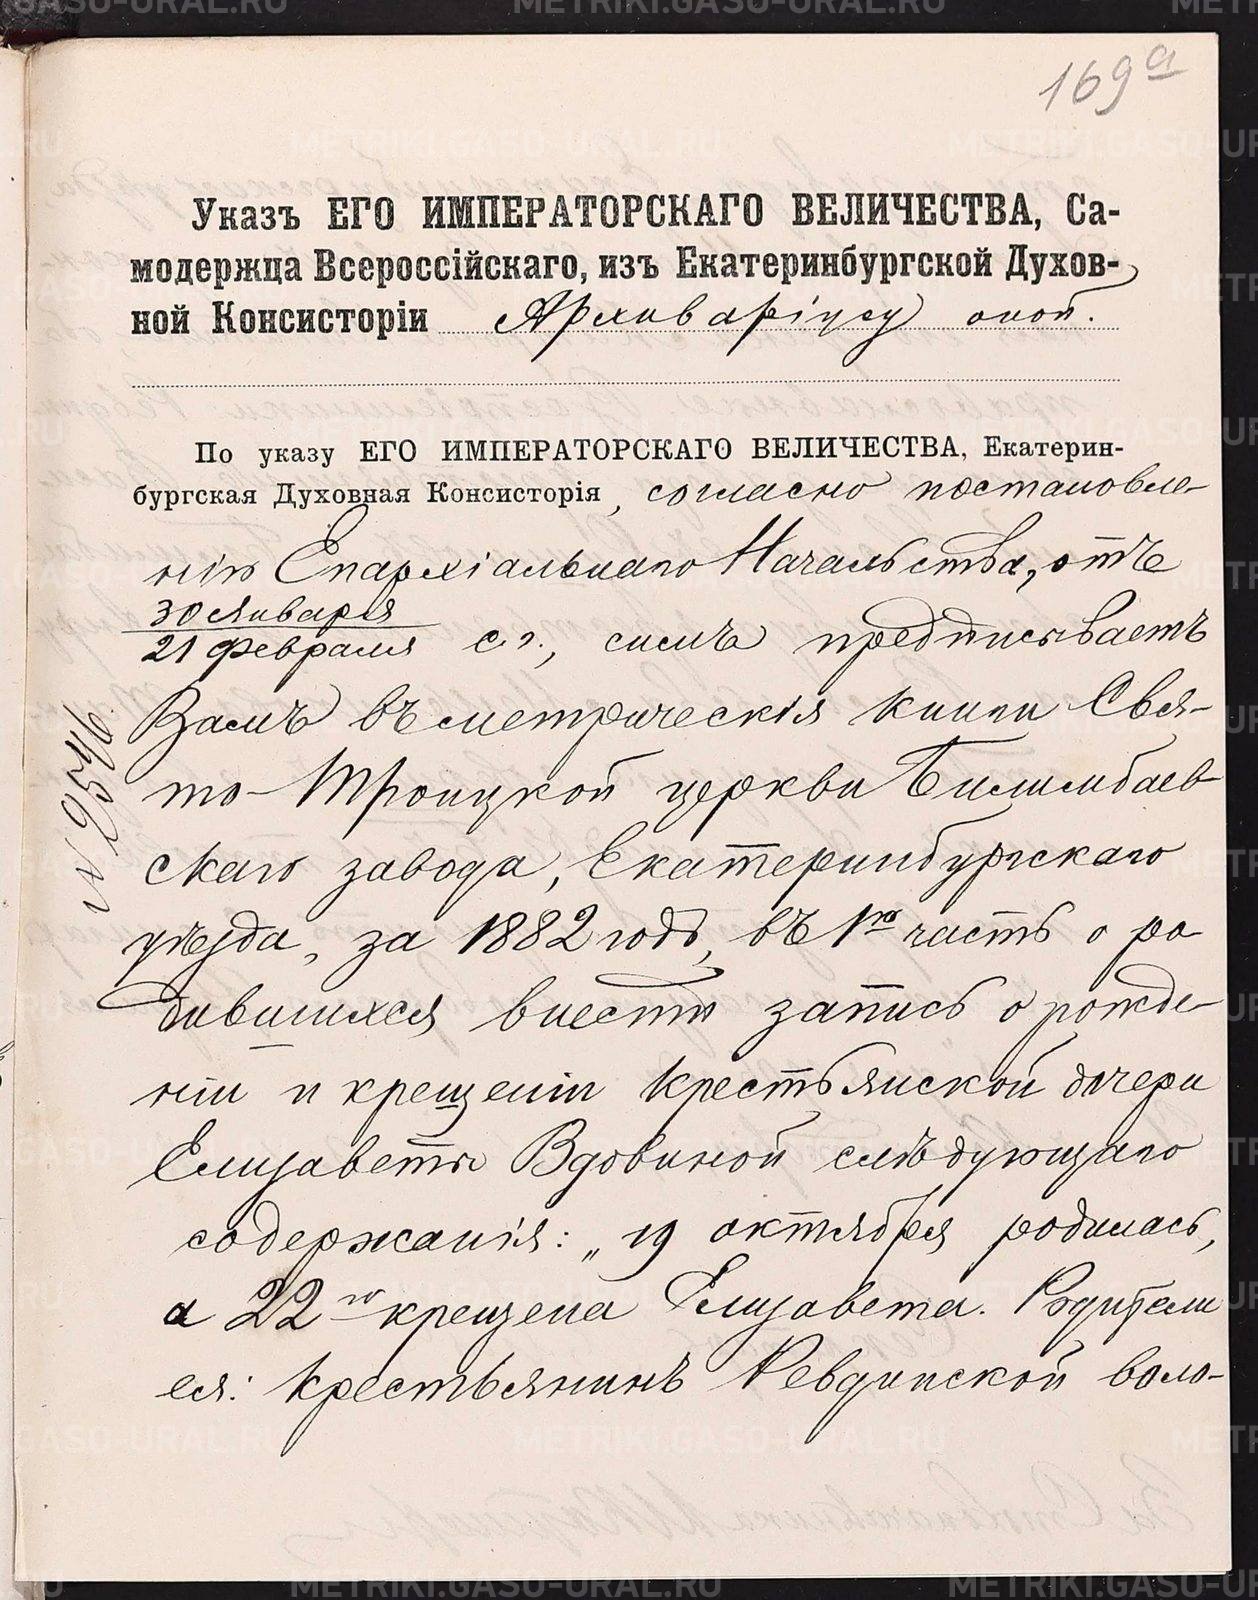 169а
Указъ ЕГО ИМПЕРАТОРСКАГО ВЕЛИЧЕСТВА, Са-
модержца Всероссійскаго, изъ Екатеринбургской Духов-
ной Консисторіи Архиваріусу оной.
По указу ЕГО ИМПЕРАТОРСКАГО ВЕЛИЧЕСТВА, Екатерин-
бургская Духовная Консисторія, согласно постановле-
нію Епархіальнаго Начальства, отъ
30 Января
21 Февраля с.г., симъ предписываетъ
Вамъ въ метрическія книги Свя-
то-Троицкой церкви Билимбаев-
скаго завода, Екатеринбургскаго
уѣзда, за 1882 годъ, въ 1ю часть о ро
дившихся внести запись о рожде-
ніи и крещеніи крестьянской дочери
Елизаветы Вдовиной слѣдующаго
содержанія: „19 октября родилась,
а 22го крещена Елизавета. Родители
ея: крестьянинъ Ревдинской воло-
№ 2546.
METRIKI.GASO-URAL.RU